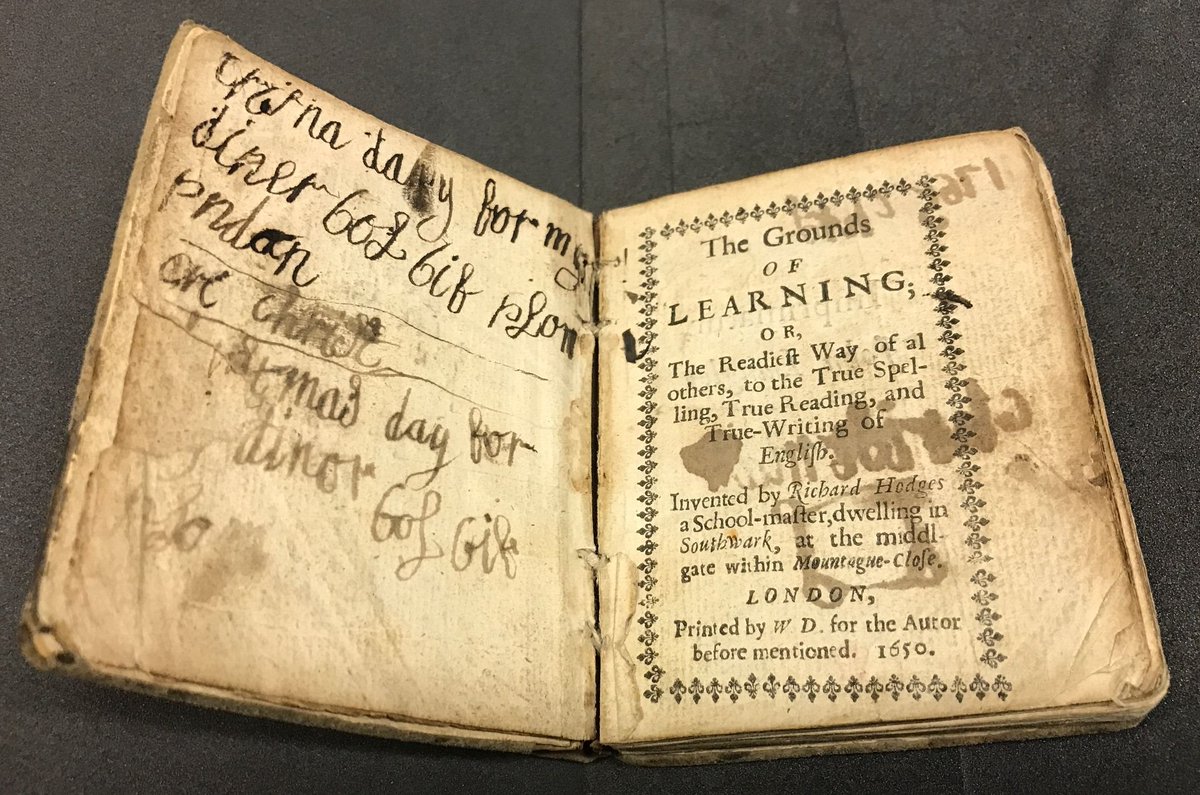 day for my
diner bof bif plom
pudan
christ
mas day for
dinor
bof bif
The Grounds
OF
LEARNING;
OR,
The Readieſt Way of al
others, to the True Spel-
ling, True Reading, and
True-Writing of
Engliſh.
Invented by Richard Hodges
a School-maſter, dwelling in
Southwark, at the middl-
gate within Mountague-Cloſe.
LONDON,
Printed by W D. for the Autor
before mentioned. 1650.